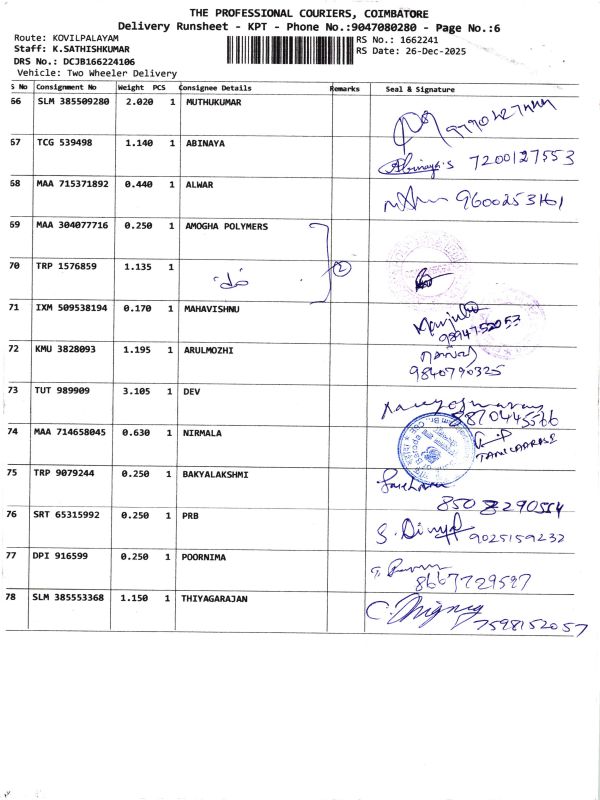 THE PROFESSIONAL COURIERS, COIMBATORE
Delivery Runsheet - KPT - Phone No.:9047080280 - Page No.:6
Route: KOVILPALAYAM
Staff: K.SATHISHKUMAR
DRS No.: DCJB166224106
Vehicle: Two Wheeler Delivery
RS No.: 1662241
RS Date: 26-Dec-2025
S No Consignment No Weight PCS Consignee Details Remarks Seal & Signature
66 SLM 385509280 2.020 1 MUTHUKUMAR
67 TCG 539498 1.140 1 ABINAYA Abinaya.s 7200127553
68 MAA 715371892 0.440 1 ALWAR 9600253461
69 MAA 304077716 0.250 1 AMOGHA POLYMERS
70 TRP 1576859 1.135 1 2
71 IXM 509538194 0.170 1 MAHAVISHNU Manjula 9894752053
72 KMU 3828093 1.195 1 ARULMOZHI 9840790325
73 TUT 989909 3.105 1 DEV 8870445566
74 MAA 714658045 0.630 1 NIRMALA
75 TRP 9079244 0.250 1 BAKYALAKSHMI
76 SRT 65315992 0.250 1 PRB 9025159232
77 DPI 916599 0.250 1 POORNIMA 8667729597
78 SLM 385553368 1.150 1 THIYAGARAJAN 7598152057